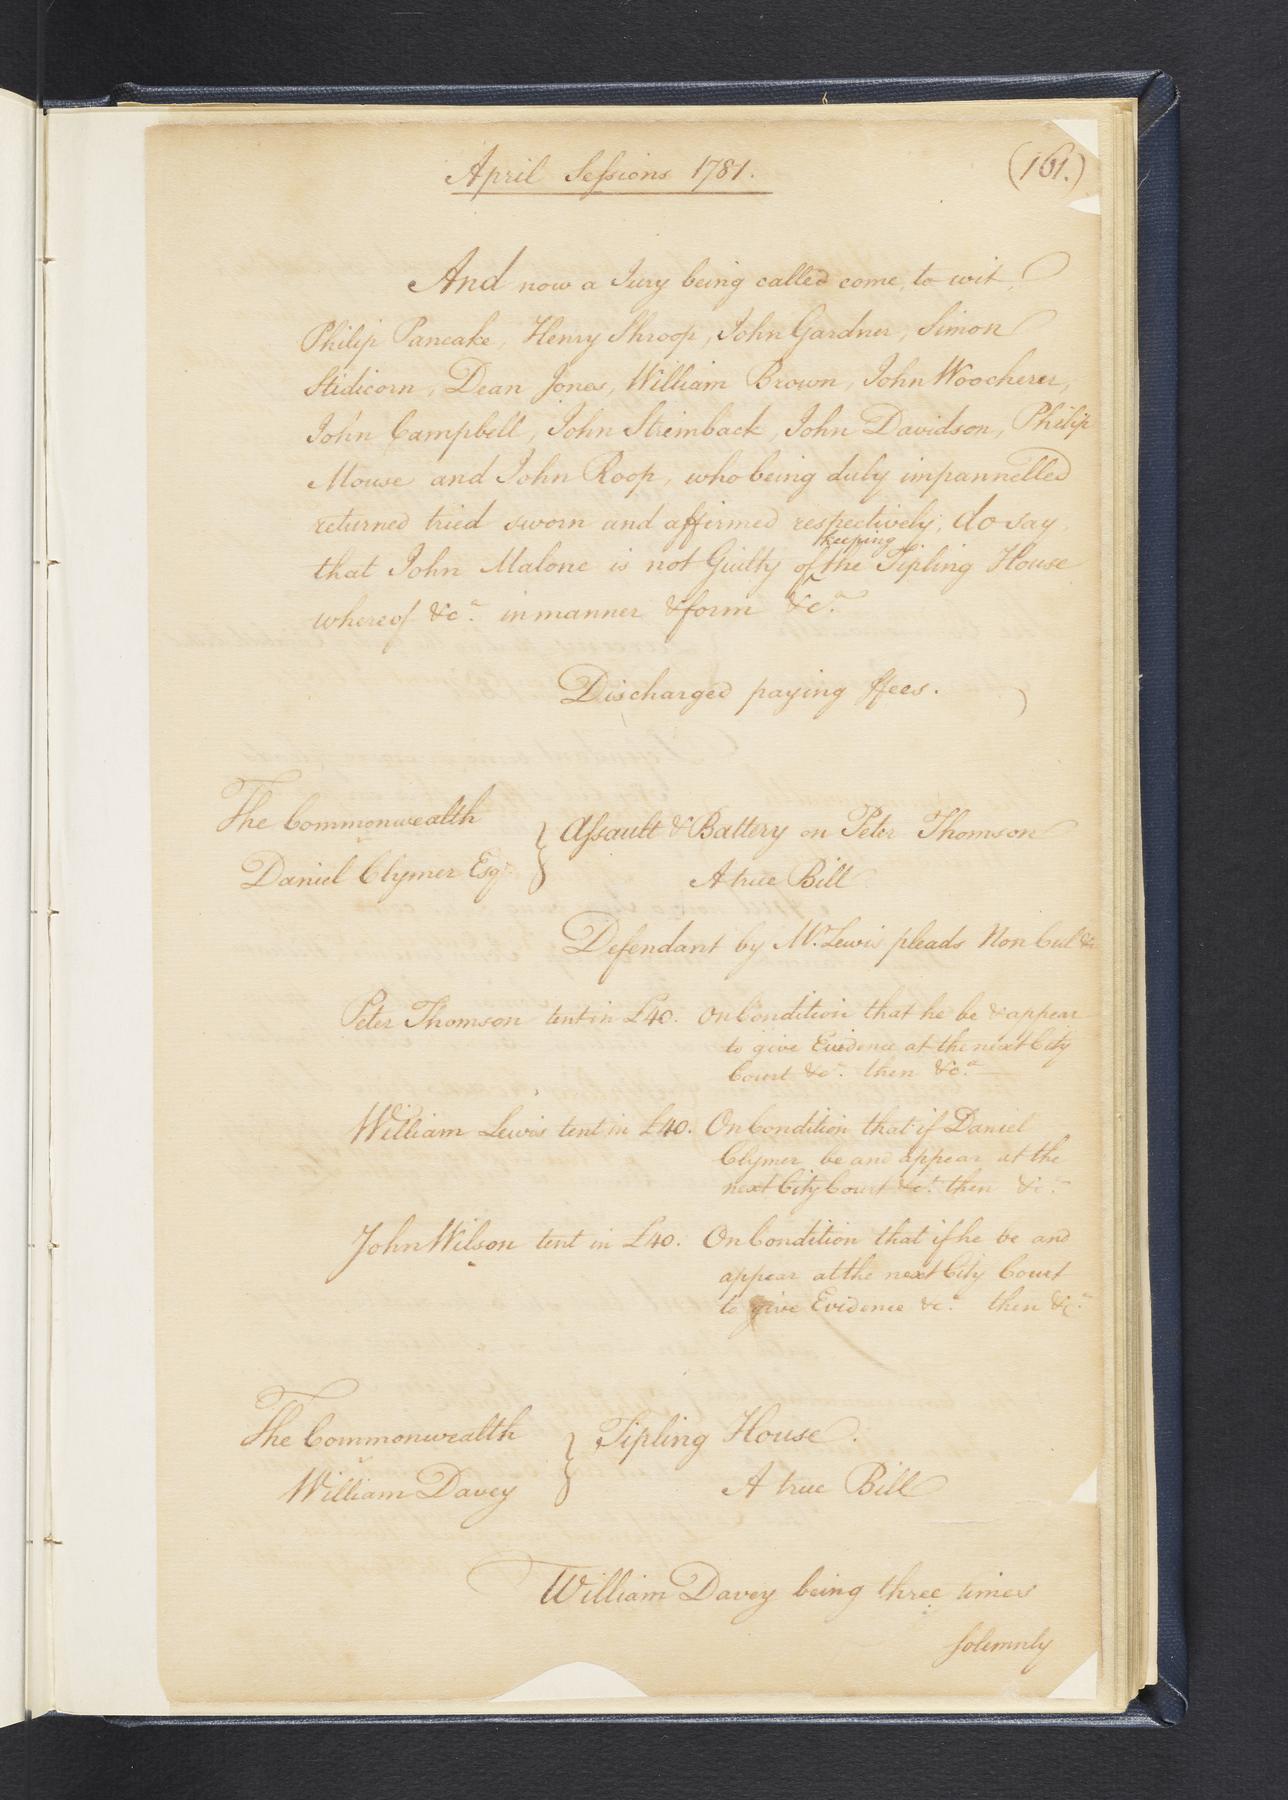 April Sessions 1781.
(161.)
And now a Jury being called come, to wit,
Philip Pancake, Henry Shroop, John Gardner, Simon
Stidicorn, Dean Jones, William Brown, John Woocherer,
John Campbell, John Stremback, John Davidson, Philip
Mouse and John Roop, who being duly impannelled
returned tried sworn and affirmed respectively, do say,
keeping
that John Malone is not Guilty of ^ the Tipling House
whereof &c.a in manner & form &c.a
Discharged paying ffees.
The Commonwealth
v
Daniel Clymer Esqr.
} Assault & Battery on Peter Thomson
A true Bill
Defendant by Mr. Lewis pleads Non Cul &c
Peter Thomson tent in £40. On Condition that he be & appear
to give Evidence at the next City
Court &c.a then &c.a
William Lewis tent in £40. On Condition that if Daniel
Clymer be and appear at the
next City Court &c.a then &c.a
John Wilson tent in £40. On Condition that if he be and
appear at the next City Court
to give Evidence &c.a then &c.a
The Commonwealth
v
William Davey
} Tipling House.
A true Bill
William Davey being three times
solemnly